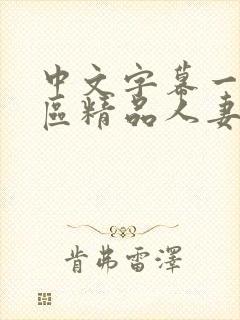 中文字幕一
區精品人妻
肯弗雷澤